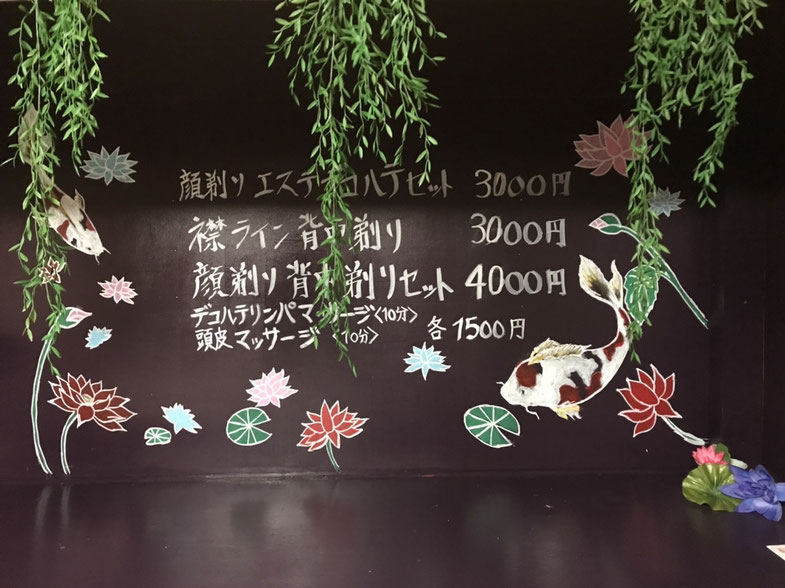 顔剃り エステデコルテセット 3000円
襟ライン 背中剃り 3000円
顔剃り 背中剃りセット 4000円
デコルテリンパマッサージ〈10分〉
頭皮マッサージ 〈10分〉 各1500円